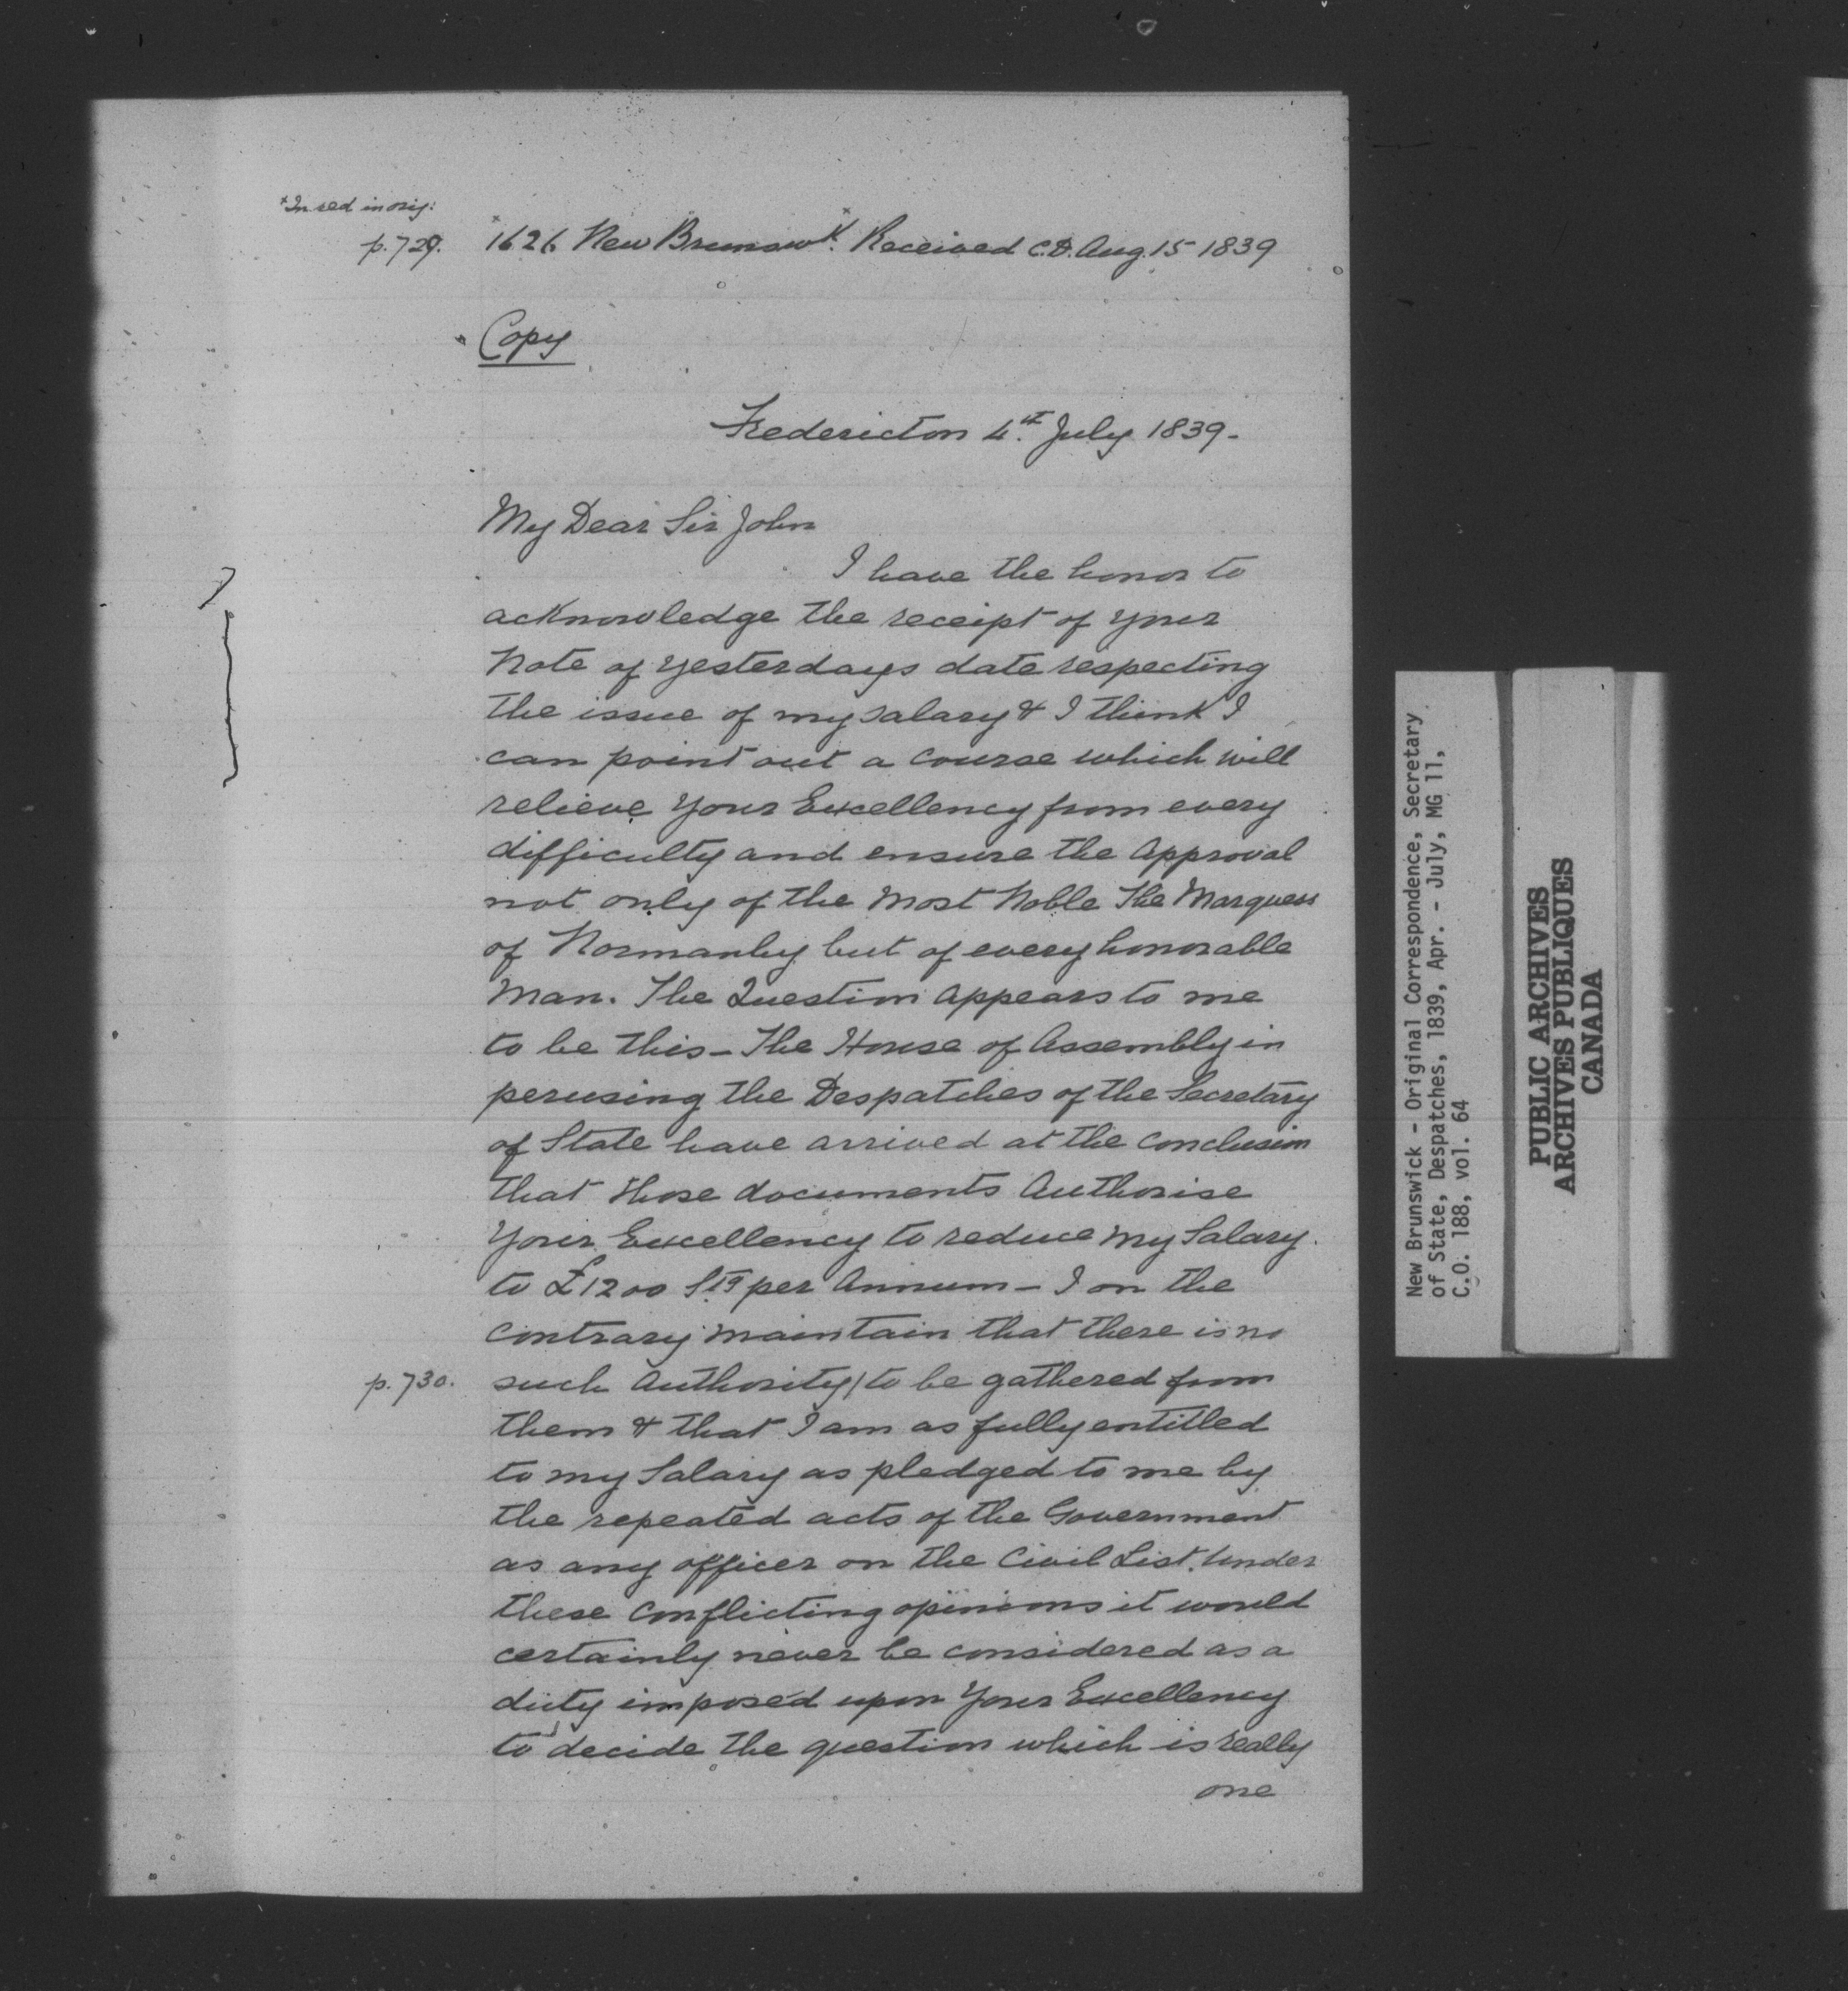 *In red in orig:
p.729. *1626 New Brunswk.* Received C.D. Aug. 15 1839
Copy
Fredericton 4th. July 1839.-
My Dear Sir John
I have the honor to
acknowledge the receipt of your
Note of yesterdays date respecting
the issue of my salary & I think I
can point out a course which will
relieve Your Excellency from every
difficulty and ensure the Approval
not only of the Most Noble The Marquess
of Normanby but of every honorable
Man. The Question appears to me
to be this - The House of Assembly in
perusing the Despatches of the Secretary
of State have arrived at the conclusion
that those documents Authorise
Your Excellency to reduce my Salary
to £1200 Stg per Annum - I on the
contrary maintain that there is no
p.730. such Authority / to be gathered from
them & that I am as fully entitled
to my Salary as pledged to me by
the repeated acts of the Government
as any officer on the Civil List. Under
these conflicting opinions it would
certainly never be considered as a
duty imposed upon Your Excellency
to decide the question which is really
one
New Brunswick - Original Correspondence, Secretary
of State, Despatches, 1839, Apr. - July, MG 11,
C.O. 188, vol. 64
PUBLIC ARCHIVES
ARCHIVES PUBLIQUES
CANADA